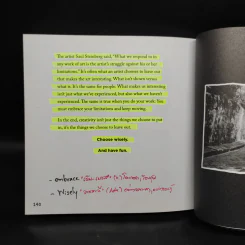 The artist Saul Steinberg said, "What we respond to in
any work of art is the artist's struggle against his or her
limitations." It's often what an artist chooses to leave out
that makes the art interesting. What isn't shown versus
what is. It's the same for people: What makes us interesting
isn't just what we've experienced, but also what we haven't
experienced. The same is true when you do your work: You
must embrace your limitations and keep moving.
In the end, creativity isn't just the things we choose to put
in, it's the things we choose to leave out.
Choose wisely.
And have fun.
- embrace
- Wisely
140